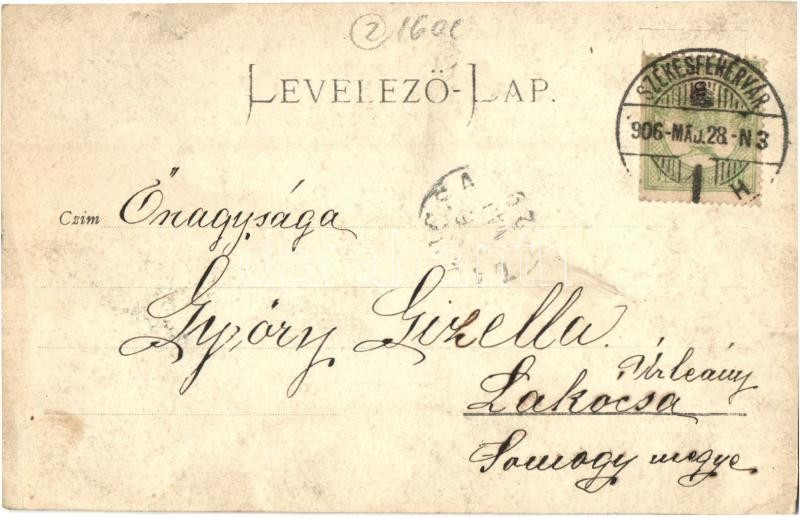 2 160c
LEVELEZŐ-LAP.
SZÉKESFEHÉRVÁR
906-MÁJ.28.-N3
H
Czim Őnagysága
Győry Gizella
Úrleány
Lakócsa
Somogy megye